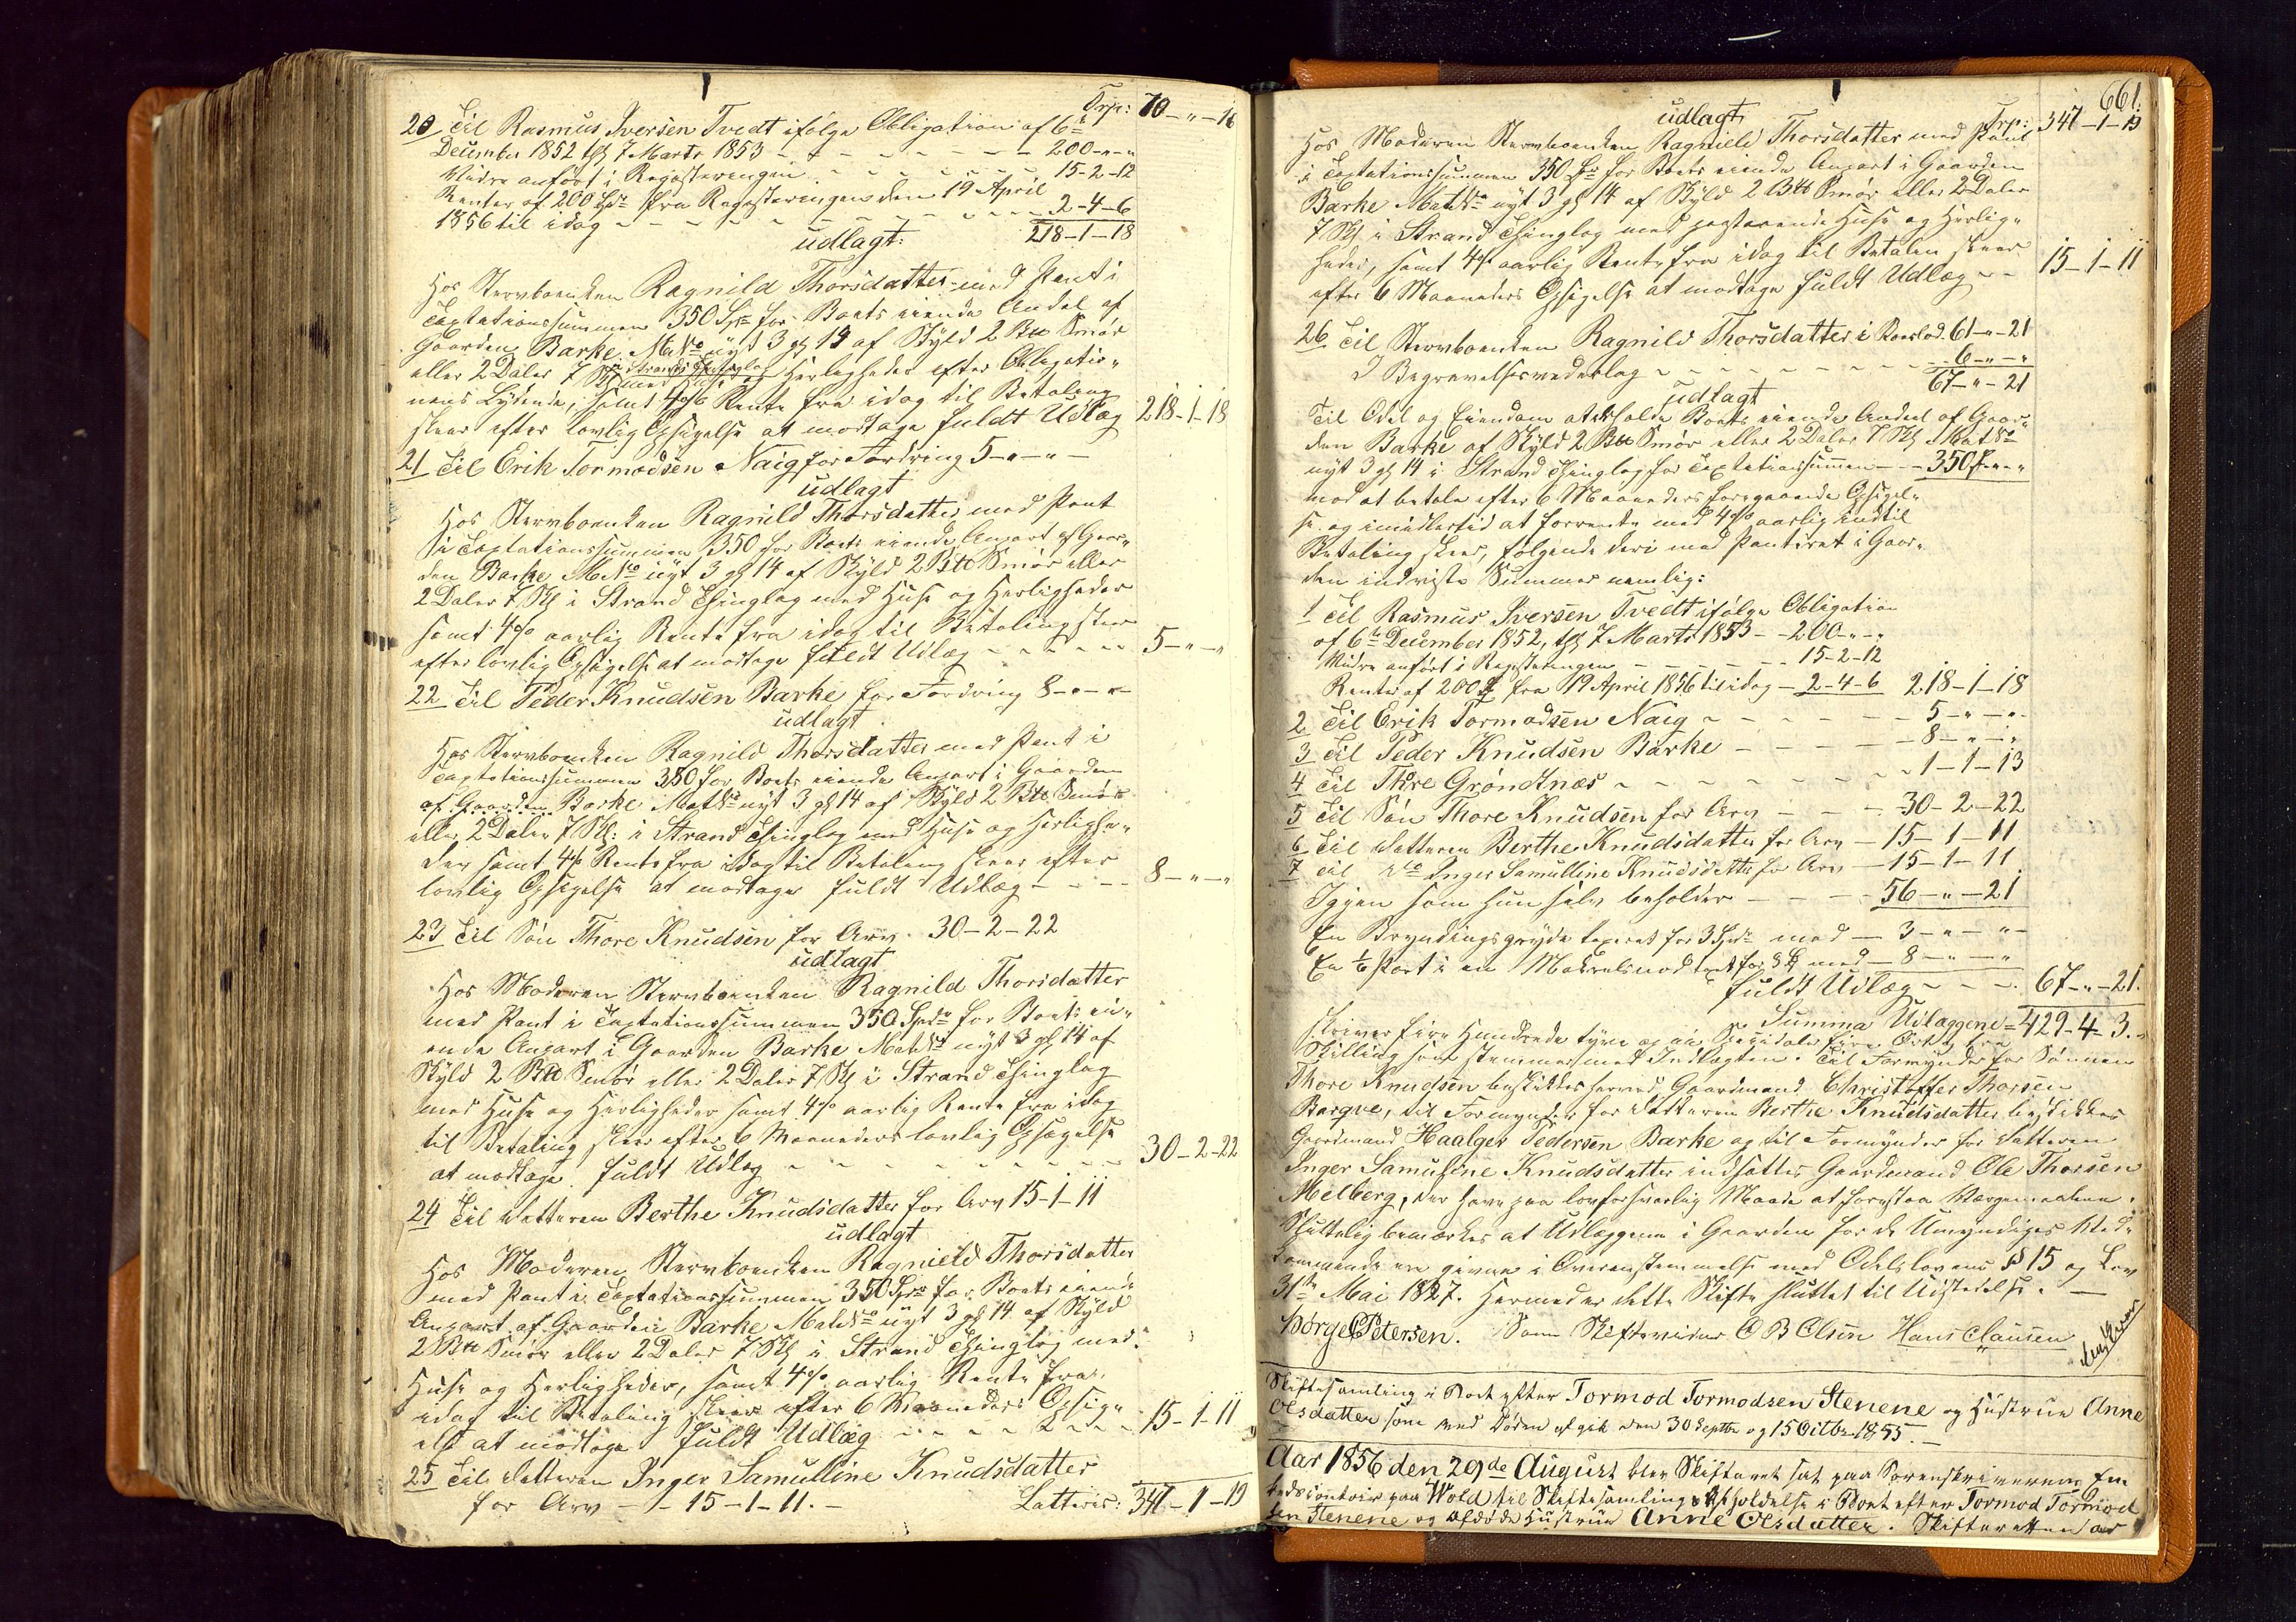 Trp: 70 – " – 16
20 Til Rasmus Iversen Tvedt ifølge Obligation af 6te
December 1852 tgl 7 Marts 1853 – – – – – – 200 – " – "
Videre anført i Registeringen – – – – – – 15 – 2 – 12
Renter af 200 Spd fra Registeringen den 19 April
1856 til idag – – – – – – – – – – 2 – 4 – 6
218 – 1 – 18
udlagt:
Hos Stervboenken Ragnild Thorsdatter med Pant i
Taxtationssummen 350 Spd for Boets eiende Andel af
Gaarden Barke Mat No nyt 3 gl 14 af Skyld 2 Btt Smør
eller 2 Daler 7 Sk i Strands Thinglag med Huse og Herligheder efter Obligatio-
nens Lydende, samt 4 % Rente fra idag til Betaling
skeer efter lovlig Opsigelse at modtage fuldt Udlæg 218 – 1 – 18
21 Til Erik Tormodsen Naig for Fordring 5 – " – " –
udlagt
Hos Stervboenken Ragnild Thorsdatter med Pant
i Taxtationssummen 350 for Boets eiende Anpart af Gaar-
den Barke MNo nyt 3 gl 14 af Skyld 2 Btt Smør eller
2 Daler 7 Sk i Strand Thinglag med Huse og Herligheder
samt 4 % aarlig Rente fra idag til Betaling skeer
efter lovlig Opsigelse at modtage fuldt Udlæg – – – – – 5 – " – "
22 Til Peder Knudsen Barke for Fordring 8 – " – " –
udlagt
Hos Stervboenken Ragnild Thorsdatter med Pant i
Taxtationssummen 350 for Boets eiende Anpart i Gaarden
af Gaarden Barke Mat No nyt 3 gl 14 af Skyld 2 Btt Smør
eller 2 Daler 7 Sk: i Strand Thinglag med Huse og Herlighe-
der samt 4 % Rente fra idag til Betaling skeer efter
lovlig Opsigelse at modtage fuldt Udlæg – – – – 8 – " – "
23 Til Søn Thore Knudsen for Arv 30 – 2 – 22
udlagt
Hos Moderen Stervboenken Ragnild Thorsdatter
med Pant i Taxtationssummen 350 Spd for Boets ei-
ende Anpart i Gaarden Barke Mat No nyt 3 gl 14 af
Skyld 2 Btt Smør eller 2 Daler 7 Sk i Strand Thinglag
med Huse og Herligheder samt 4 % aarlig Rente fra idag
til Betaling skeer efter 6 Maaneders lovlig Opsigelse
at modtage fuldt Udlæg – – – – – – – – 30 – 2 – 22
24 Til Datteren Berthe Knudsdatter for Arv 15 – 1 – 11
udlagt
Hos Moderen Stervboenken Ragnield Thorsdatter
med Pant i Taxtationssummen 350 Spd for Boets eiende
Anpart af Gaarden Barke Mat No nyt 3 gl 14 af Skyld
2 Btt Smør eller 2 Daler 7 Sk i Strand Thinglag med
Huse og Herligheder, samt 4 % aarlig Rente fra
idag til Betaling skeer efter 6 Maaneders Opsig-
else at modtage fuldt Udlæg – – – – – – 15 – 1 – 11
25 Til Datteren Inger Samulline Knudsdatter
for Arv – – 15 – 1 – 11. –
Latteris: 347 – 1 – 19
661.
Trp: 347 – 1 – 19
udlagt
Hos Moderen Stervboenken Ragnield Thorsdatter med Pant
i Taxtationssummen 350 Spd for Boets eiende Anpart i Gaarden
Barke Mat No nyt 3 gl 14 af Skyld 2 Btt Smør eller 2 Daler
7 Sk i Strand Thinglag med paastaaende Huse og Herlig-
heder, samt 4 % aarlig Rente fra idag til Betalen skeer
efter 6 Maaneders Opsigelse at modtage fuldt Udlæg – – 15 – 1 – 11
26 Til Stervboenken Ragnild Thorsdatter i Boeslod 61 – " – 21
I Begravelsesvederlag – – – – – – – – 6 – " – "
67 – " – 21
udlagt
Til Odel og Eiendom at beholde Boets eiende Andeel af Gaar-
den Barke af Skyld 2 Btt Smør eller 2 Daler 7 Sk Mat No
nyt 3 gl 14 i Strand Thinglag for Taxtationssummen – – 350 – " – "
mod at betale efter 6 Maaneders foregaaende Opsigel-
se og imidlertid at forrente med 4 % aarlig indtil
Betaling skeer, følgende deri med Panteret i Gaar-
den indviste Summer nemlig:
1 Til Rasmus Iversen Tvedt ifølge Obligation
af 6te December 1852, tgl 7 Marts 1853 – – 200 – " – "
Videre anført i Registeringen – – – – – 15 – 2 – 12
Renter af 200 fra 19 April 1856 til idag – 2 – 4 – 6 218 – 1 – 18
2 Til Erik Tormodsen Naig – – – – – – 5 – " – " –
3 Til Peder Knudsen Barke – – – – – – 8 – " – "
4 Til Thore Grøndtnæs – – – – – – – – 1 – 1 – 13
5 Til Søn Thore Knudsen for Arv – – – – 30 – 2 – 22
6 Til Datteren Berthe Knudsdatter for Arv – 15 – 1 – 11
7 Til Dto Inger Samulline Knudsdatter for Arv – 15 – 1 – 11
Igjen som hun selv beholder – – – – 56 – " – 21
En Brygningsgryde taxeret for 3 Spd med – 3 – " – " –
En 1/6 Part i en Makrelsnod taxt for 8 med – 8 – " – "
fuldt Udlæg – – – 67 – " – 21.
Summa Udlæggene = 429 – 4 – 3.
skriver fire Hundrede tyve og ni Speciedaler fire Ort og tre
Skilling som stemmer med Indtægten. Til Formynder for Sønnen
Thore Knudsen beskikkes herved Gaardmand Christoffer Thorsen
Barque, til Formynder for Datteren Berthe Knudsdatter beskikkes
Gaardmand Haalger Pedersen Barke og til Formynder for Datteren
Inger Samuline Knudsdatter indsættes Gaardmand Ole Thorsen
Melberg, der have paa lovforsvarlig Maade at forestaa Værgemaalene.
Sluttelig bemærkes at Udlæggene i Gaarden for de Umyndiges Ved-
kommende ere givne i Overensstemmelse med Odelslovens § 15 og Lov
31te Mai 1827. Hermed er dette Skifte sluttet til Udstedelse. –
Børge C Petersen. Som Skiftevidner O B Olsen Hans Clausen
Skiftesamling i Boet efter Tormod Tormodsen Stenene og Hustrue Anne
Olsdatter som ved Døden afgik den 30 Septbr og 15 Octbr 1855. –
Aar 1856 den 29de August blev Skifteret sat paa Sorenskriverens Em-
bedscontoir paa Wold til Skiftesamlings Afholdelse i Boet efter Tormod Tormod
sen Stenene og afdøde Hustrue Anne Olsdatter. Skifteretten var